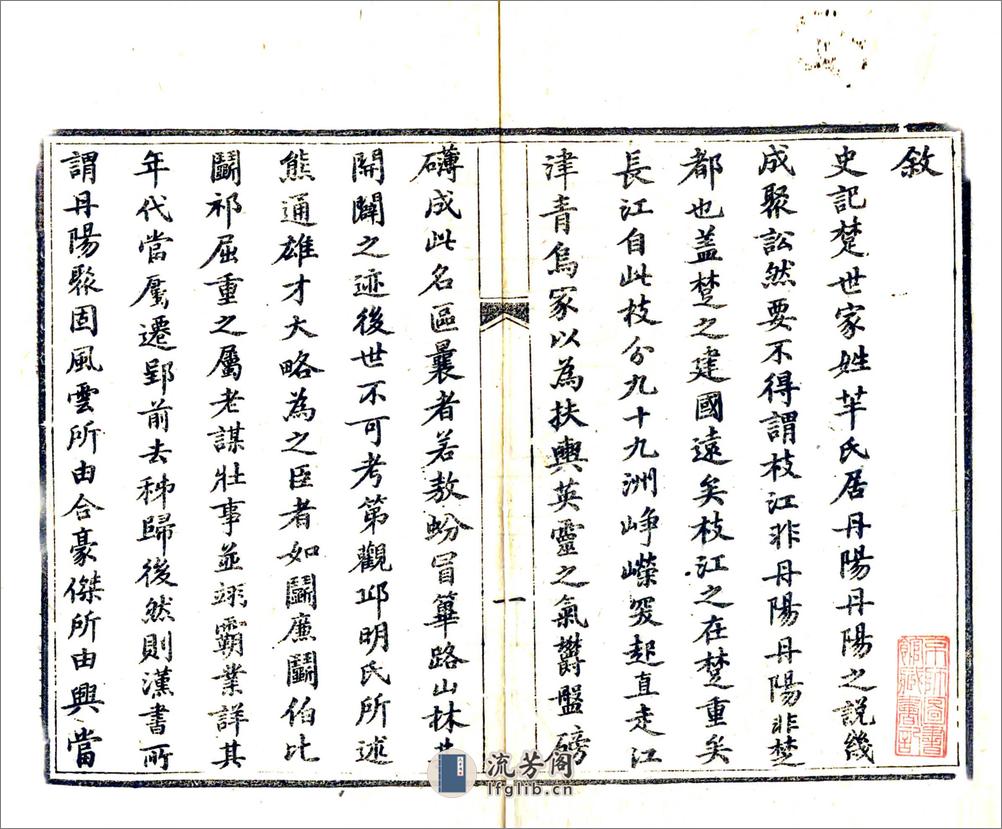 敘
史記楚世家姓羋氏居丹陽丹陽之說幾
成聚訟然要不得謂枝江非丹陽丹陽非楚
都也蓋楚之建國遠矣枝江之在楚重矣
長江自此枝分九十九洲崢嶸突起直走江
津青烏家以為扶輿英靈之氣鬱盤磅
礴成此名區曩者若敖蚡冒篳路山林其
開闢之迹後世不可考第觀邱明氏所述
熊通雄才大略為之臣者如鬭廉鬭伯比
鬭祁屈重之屬老謀壯事並翊霸業詳其
年代當屬遷郢前去秭歸後然則漢書所
謂丹陽聚固風雲所由合豪傑所由興當
一
京師圖書
館藏書記
流芳阁
lfglib.cn